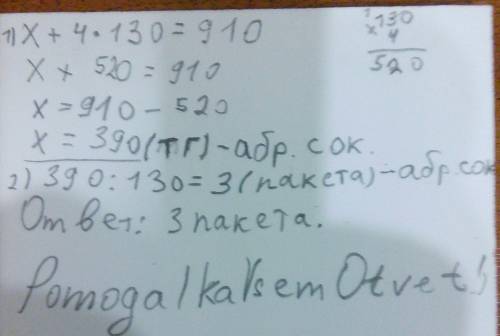 1) x + 4 · 130 = 910
x + 520 = 910
x = 910 - 520
x = 390 (тг) - абр. сок.
2) 390 : 130 = 3 (пакета) - абр. сок
Ответ: 3 пакета.
Pomogalka Vsem Otvet!
1
130
x 4
520